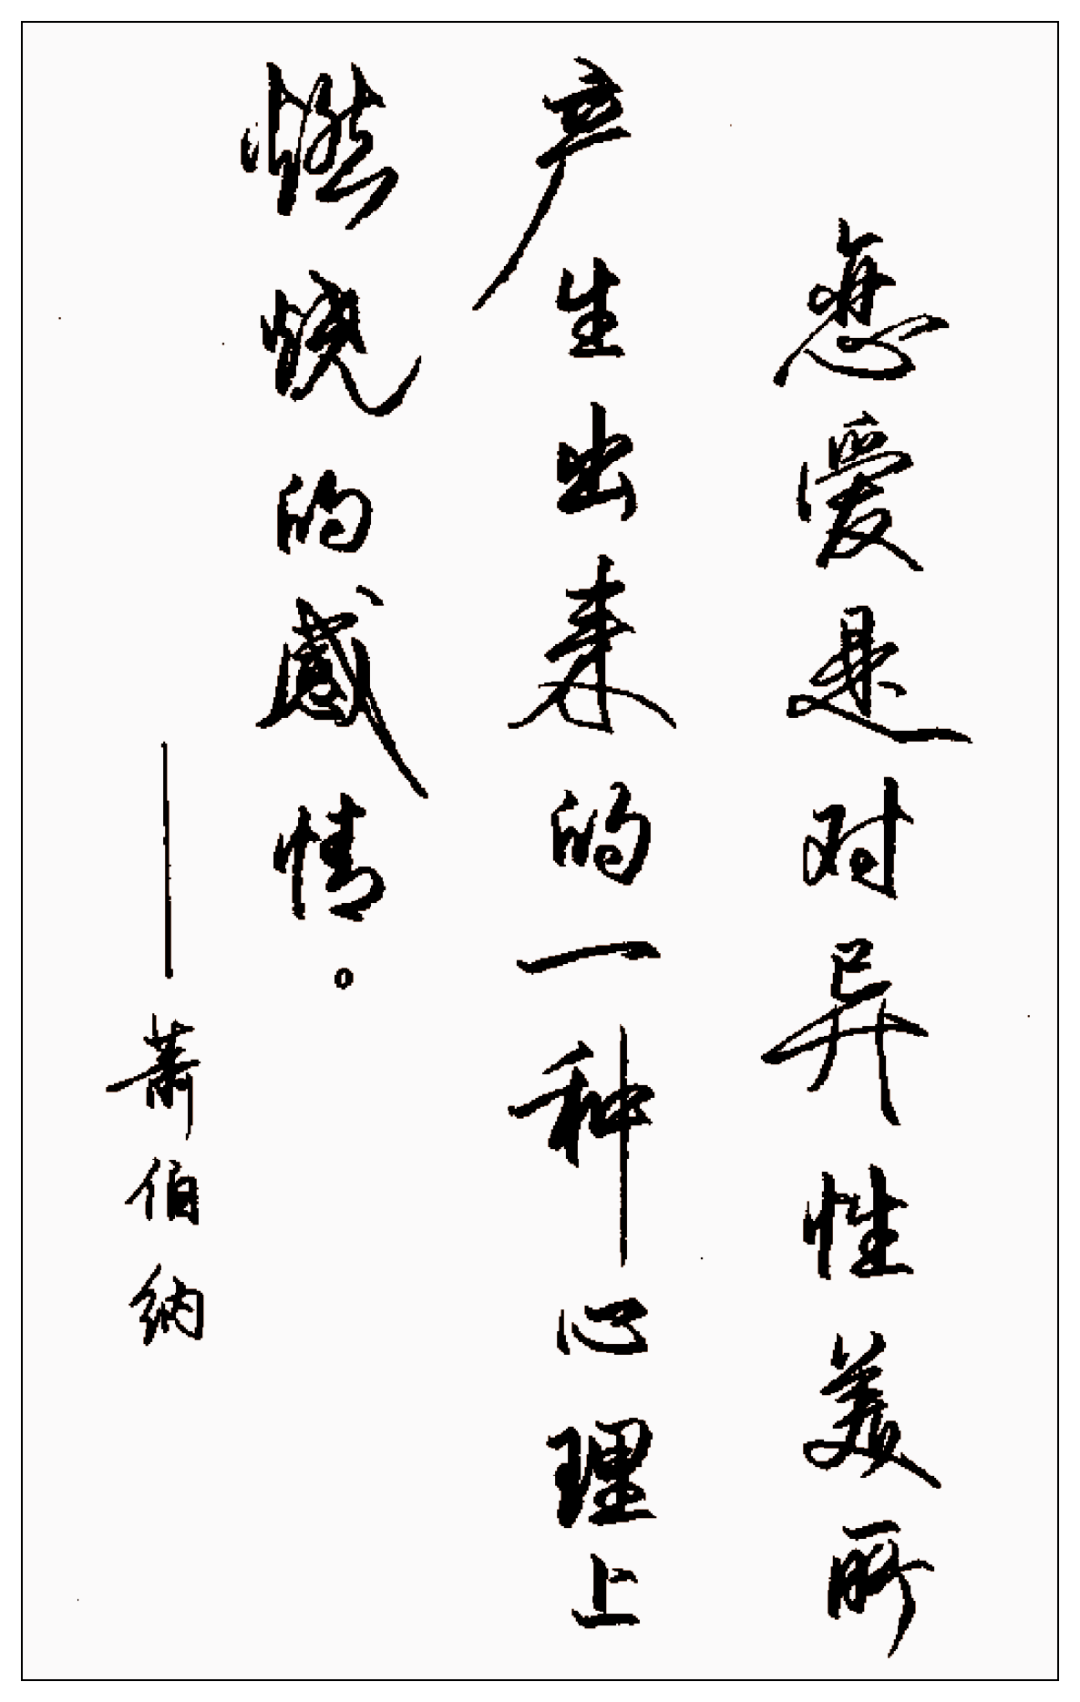 恋爱是对异性美所
产生出来的一种心理上
燃烧的感情。
——萧伯纳